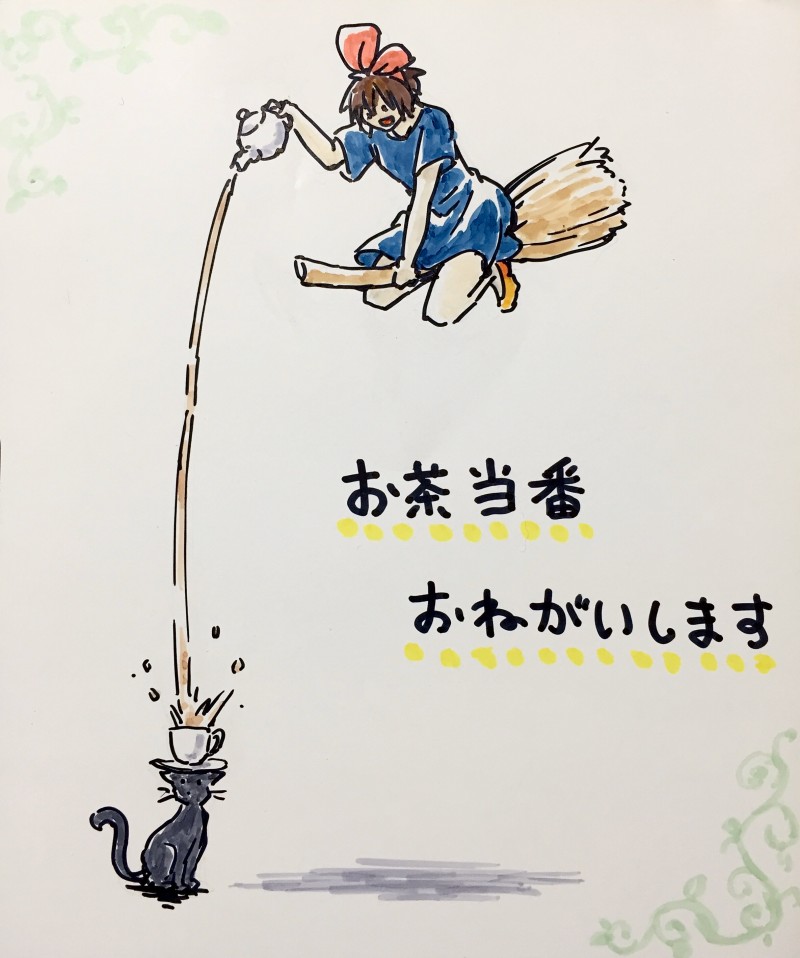 お茶当番
おねがいします